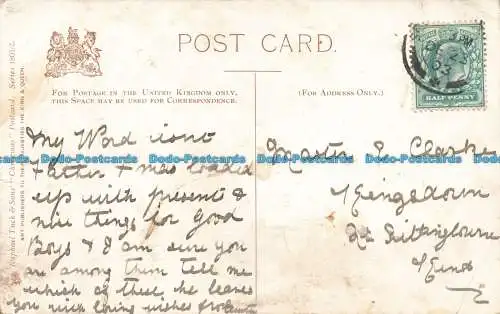 POST CARD.
FOR POSTAGE IN THE UNITED KINGDOM ONLY,
THIS SPACE MAY BE USED FOR CORRESPONDENCE.
(FOR ADDRESS ONLY.)
HALF PENNY
Raphael Tuck & Sons' "Christmas" Postcard. Series 1801
ART PUBLISHERS TO THEIR MAJESTIES THE KING & QUEEN.
My Word isnt
Father Xmas loaded
up with presents &
nice things for Good
Boys & I am sure you
are among them tell me
which of these he leaves
you with loving wishes from Auntie
Master S. Clarke
Kingsdown
Nr Sittingbourne
Kent
Dodo-Postcards Dodo-Postcards Dodo-Postcards Dodo-Postcards